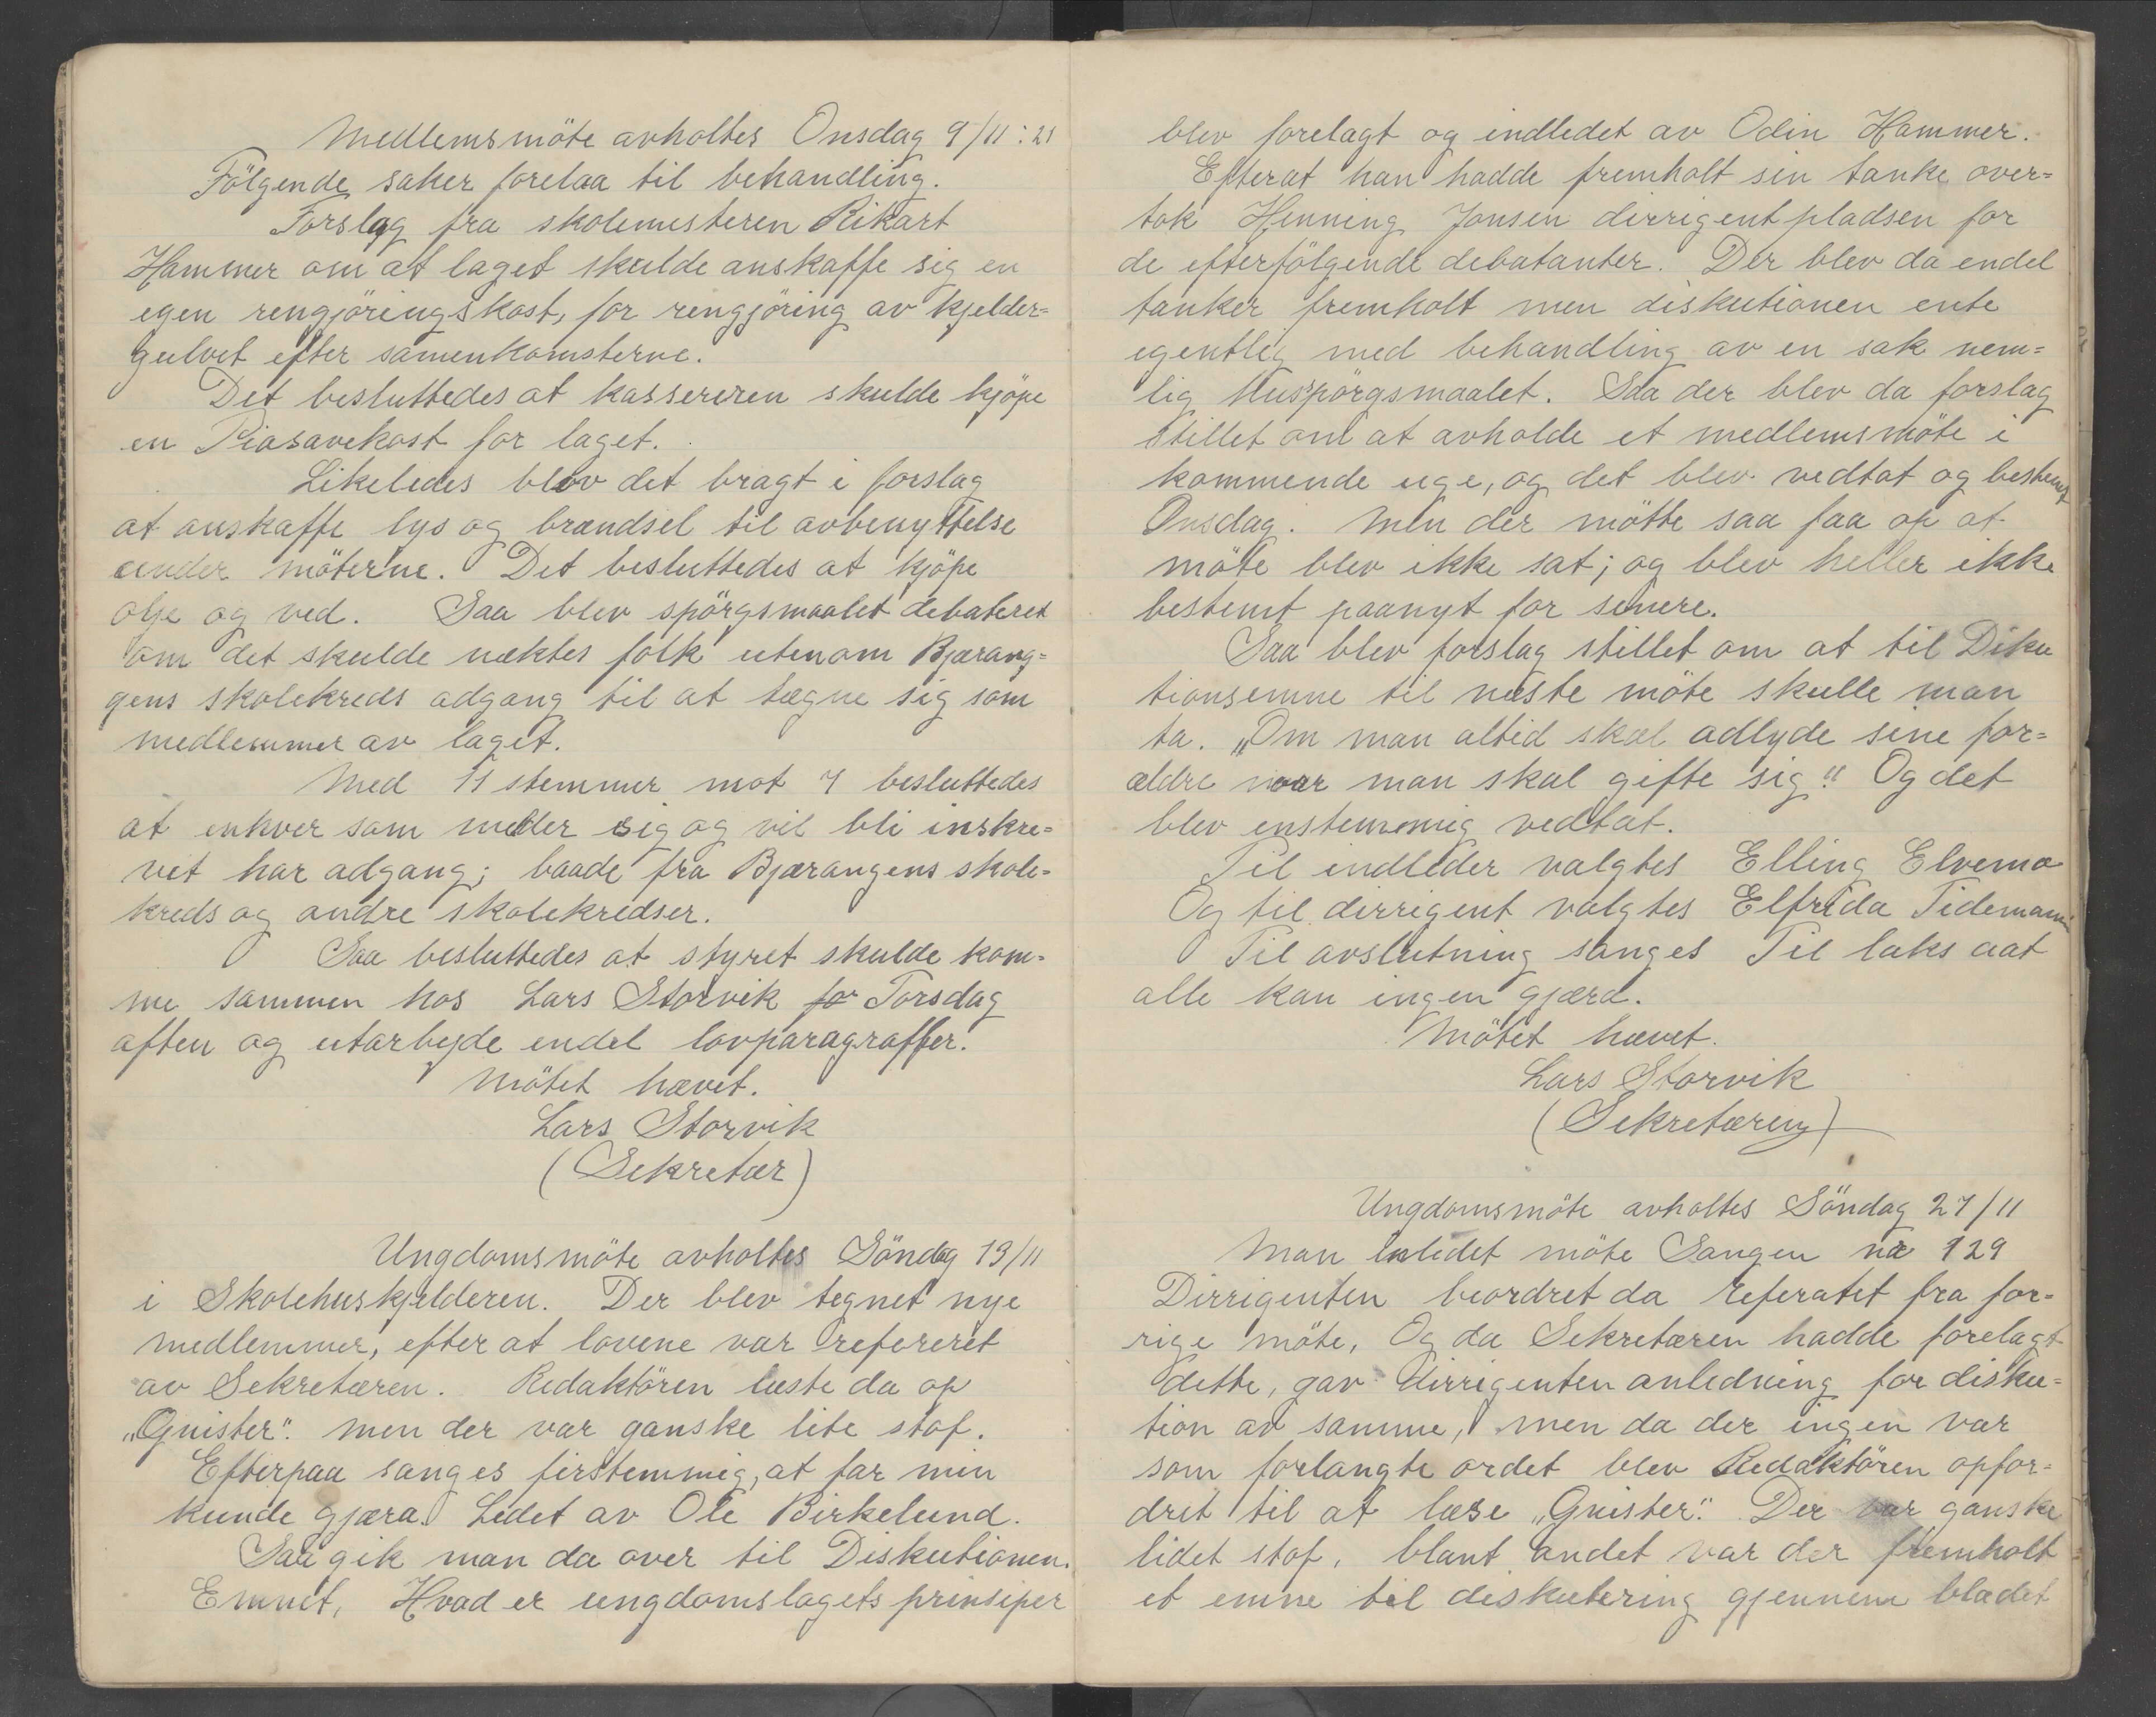 Medlemsmöte avholtes Onsdag 9/11: 21
Fölgende saker forelaa til behandling.
Forslag fra skolemesteren Rikart
Hammer om at laget skulde anskaffe sig en
egen rengjöringskost, for rengjöring av kjelder=
gulvet efter samenkomsterne.
Det besluttedes at kassereren skulde kjöpe
en Piasavekost for laget.
Likeledes blev det bragt i forslag
at anskaffe lys og brændsel til avbenyttelse
under möterne. Det besluttedes at kjöpe
olje og ved. Saa blev spörgsmaalet debateret
om det skulde nektes folk utenom Bjærang=
gens skolekreds adgang til at tægne sig som
medlemmer av laget.
Med 11 stemmer mot 7 besluttedes
at enhver som melder sig og vil bli inskre=
vet har adgang; baade fra Bjærangens skole=
kreds og andre skolekredser.
Saa besluttedes at styret skulde kom=
me sammen hos Lars Storvik for Torsdag
aften og utarbeide endel lovparagraffer.
Mötet hævet.
Lars Storvik
(Sekretær)
Ungdomsmöte avholtes Söndag 13/11
i Skolehuskjelderen. Der blev tegnet nye
medlemmer, efter at lovene var refereret
av Sekretæren. Redaktören læste da op
„Gnister". Men der var ganske lite stof.
Efterpaa sanges firstemmig, at far min
kunde gjæra. Ledet av Ole Birkelund.
Saa gik man da over til Diskutionen.
Emnet, Hvad er ungdomslagets prinsiper
blev forelagt og indledet av Odin Hammer.
Efterat han hadde fremholt sin tanke over=
tok Henning Jonsen dirrigentpladsen for
de efterfölgende debatanter. Der blev da endel
tanker fremholt men diskutionen ente
egentlig med behandling av en sak nem=
lig Huspörgsmaalet. Saa der blev da forslag
stillet om at avholde et medlemsmöte i
kommende uge, og det blev vedtat og bestemt
Onsdag. Men der mötte saa faa op at
möte blev ikke sat; og blev heller ikke
bestemt paanyt for senere.
Saa blev forslag stillet om at til Disku
tionsemne til næste möte skulle man
ta. „Om man altid skal adlyde sine for=
ældre naar man skal gifte sig". Og det
blev enstemmig vedtat.
Til indleder valgtes Elling Elvemo
Og til dirrigent valgtes Elfrida Tidemann
Til avslutning sanges Til laks aat
alle kan ingen gjærd.
Mötet hævet.
Lars Storvik
(Sekretæren)
Ungdomsmöte avholtes Söndag 27/11
Man inledet möte Sangen no 129
Dirrigenten beordret da referatet fra for=
rige möte, Og da Sekretæren hadde forelagt
dette, gav Dirrigenten anledning for disku=
tion av samme, men da der ingen var
som forlangte ordet blev Redaktören opfor=
dret til at læse „Gnister". Der var ganske
lidet stof, blant andet var der fremholt
et emne til diskutering gjennem bladet